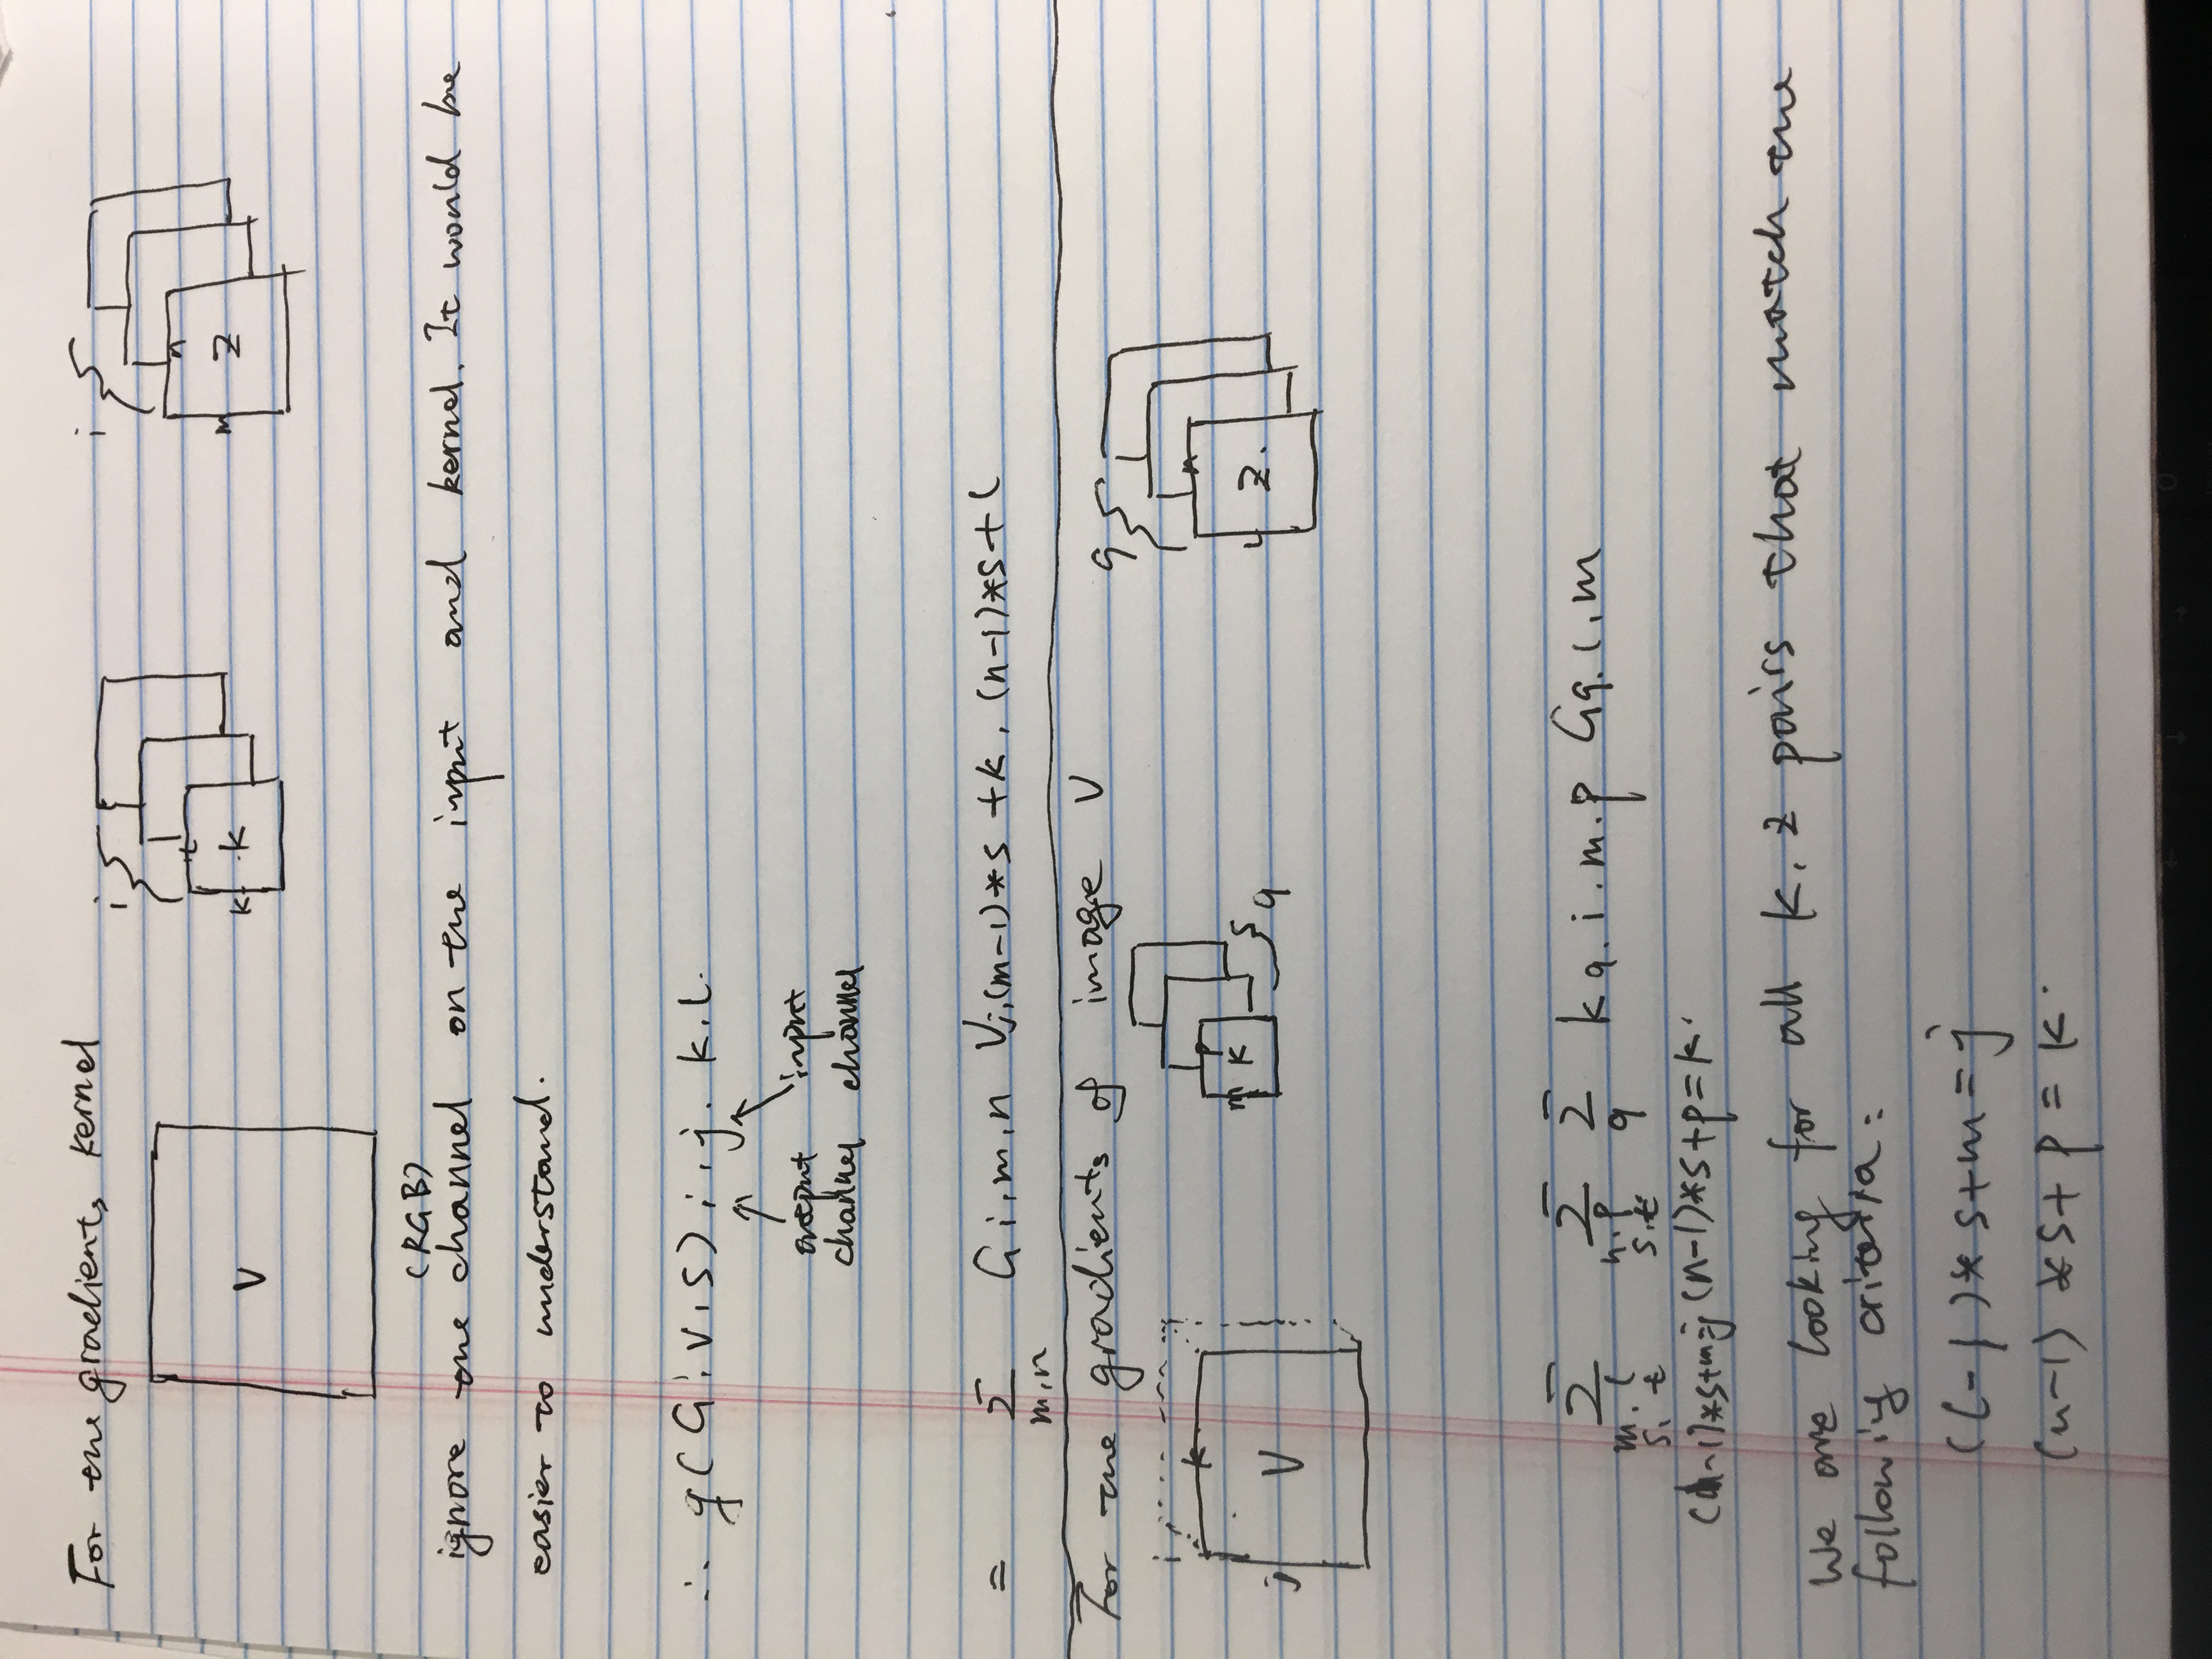 For the gradients, kernel
i
i
t
n
V
k
K
m
Z
(RGB)
ignore one channel on the input and kernel. It would be
easier to understand.
∴ g(G, V, S) i, j. k, l.
output input
channel channel
= Σ Gi,m,n Vj,(m-1)*s+k, (n-1)*s+l
m,n
For the gradients of image V
q
i
k
n
p
m
K
j
V
q
l
Z.
Σ Σ Σ Kq.i.m.p Gq.l.m
m. l n.p q
s, t s.t
(l-1)*s+m=j (n-1)*s+p=k.
We are looking for all K, Z pairs that match the
following criteria:
(l-1)*s+m=j
(n-1)*s+p=k.